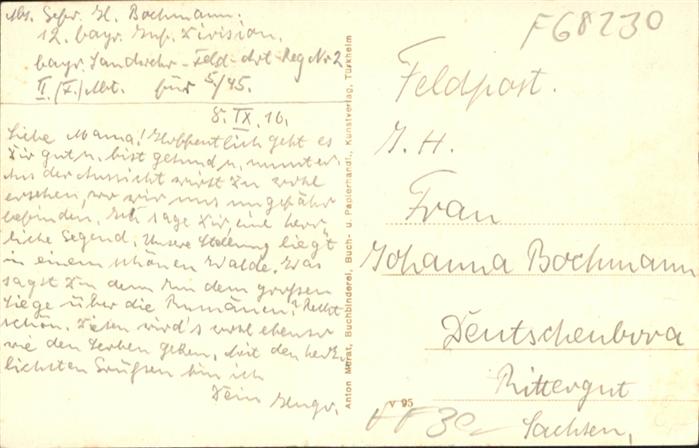 Abs. Gefr. H. Bochmann.
12. bayr. Inf. Division.
bayr. Landwehr-Feld-Art-Reg Nr 2
II. (F.) Abt. für 5/45.
8. IX. 16.
Liebe Mama! Hoffentlich geht es
Dir gut u. bist gesund u. munter.
Aus der Aussicht wirst Du wohl
ersehen, wo wir uns ungefähr
befinden. Ich sage Dir, eine herr-
liche Gegend. Unsere Stellung liegt
in einem schönen Walde. Was
sagst Du denn zu dem großen
Siege über die Rumänen? Recht
schön. Diesen wird's wohl ebenso
wie den Serben gehen. Mit den herz-
lichsten Grüßen bin ich
Dein
F68230
Feldpost.
I. H.
Frau
Johanna Bochmann
Deutschenbora
Rittergut
Sachsen.
V 95
Anton Marat, Buchbinderei, Buch- u. Papierhandl., Kunstverlag, Türkheim